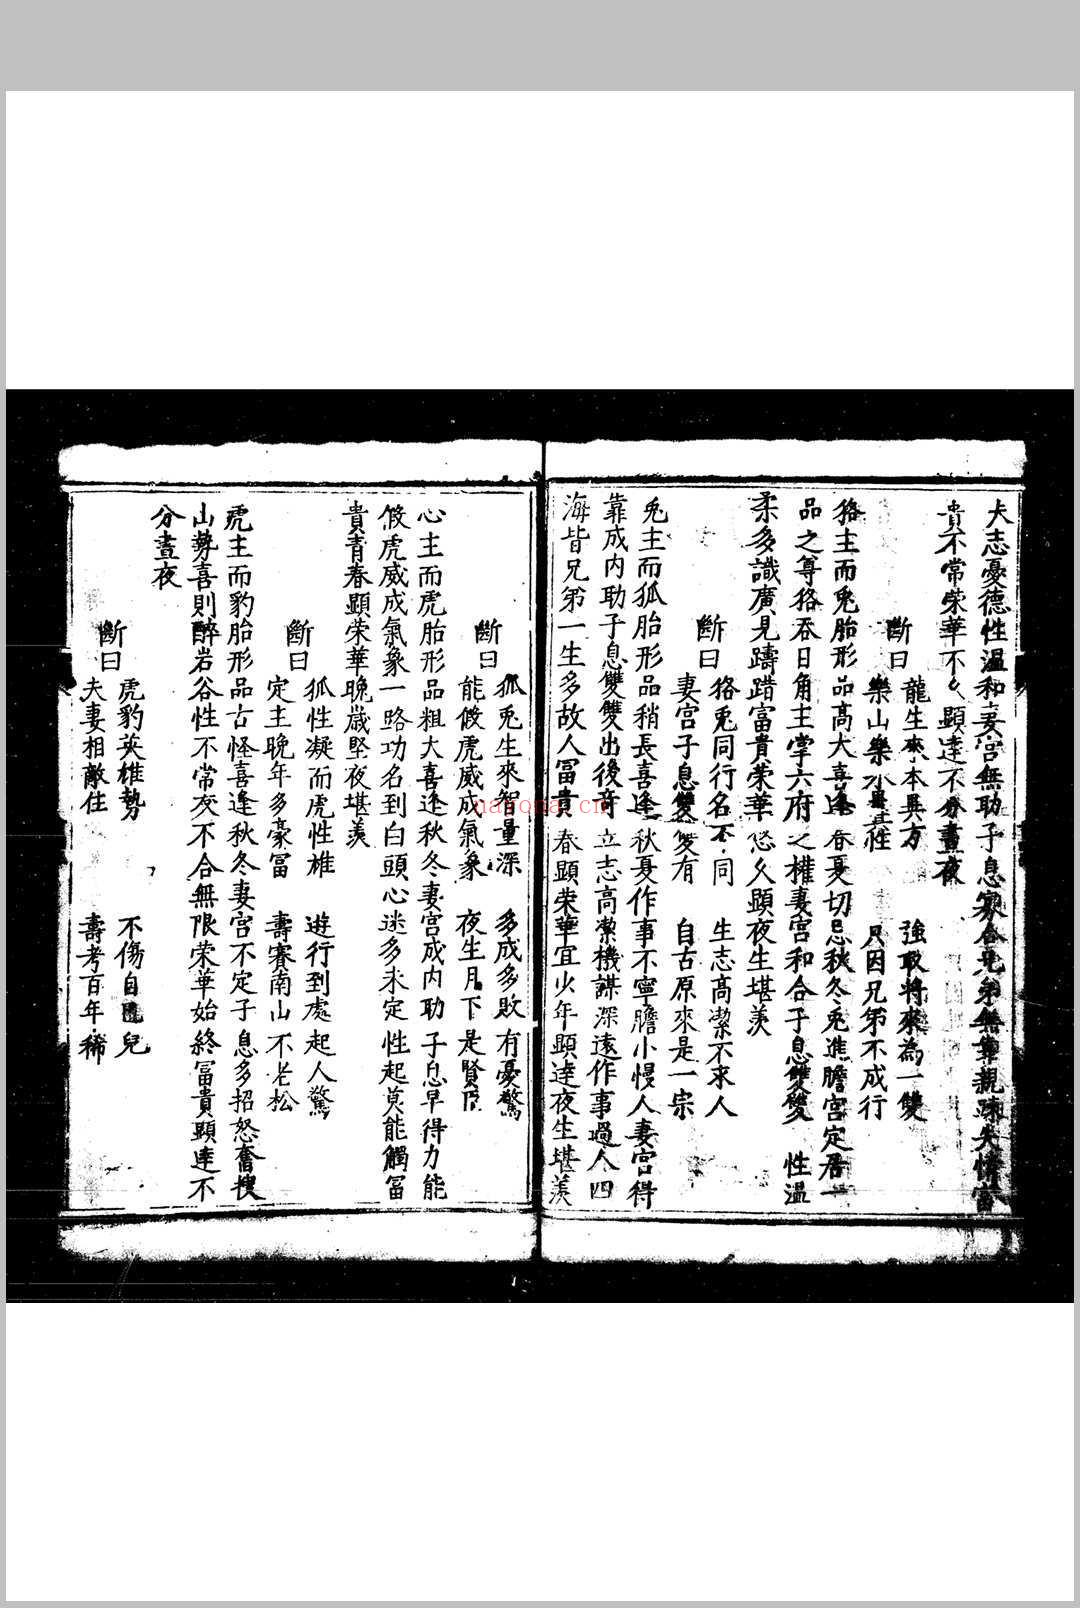 大志憂德性溫和妻宮無助子息寡合兄弟無靠親疎失情富
貴不常榮華不久顯達不分晝夜
斷曰
龍生來本異方 強取將來為一雙
樂山樂水異性 只因兄弟不成行
狢主而兎胎形品高大喜逢春夏切忌秋冬兎進膽宮定居一
品之尊狢吞日角主掌六府之權妻宮和合子息雙雙性溫
柔多識廣見躊躇富貴榮華悠久顕夜生堪羡
斷曰
狢兎同行名不同 生志高潔不求人
妻宮子息雙雙有 自古原來是一宗
兎主而狐胎形品稍長喜逢秋夏作事不寧膽小慢人妻宮得
靠成内助子息雙雙出後竒立志高潔機謀深遠作事過人四
海皆兄弟一生多故人冨貴春顯荣華宜火年顕達夜生堪羡
斷曰
狐兎生來智量深 多成多敗有憂驚
能假虎威成氣象 夜生月下是賢臣
心主而虎胎形品粗大喜逢秋冬妻宮成内助子息早得力能
假虎威成氣象一路功名到白頭心迷多未定性起莫能觸冨
貴青春顕荣華晚嵗堅夜堪羡
斷曰
狐性凝而虎性雄 遊行到處起人驚
定主晚年多豪冨 壽賽南山不老松
虎主而豹胎形品古怪喜逢秋冬妻宮不定子息多招怒奮搜
山勢喜則醉岩谷性不常灾不合無限荣華始終冨貴顕達不
分晝夜
斷曰
虎豹英雄勢 不傷自兒
夫妻相敵住 壽考百年稀
nayona.cn